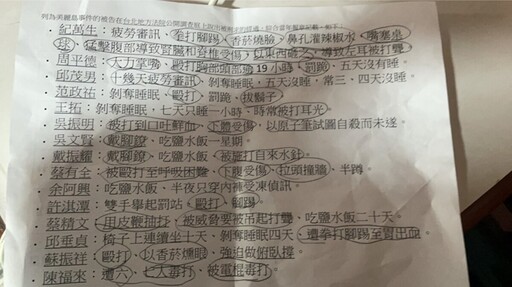 列為美麗島事件的被告在台北地方法院公開調查庭上說出被刑求的經過，綜合當年報章記載，如下：
紀萬生：疲勞審訊、拳打腳踢、香菸燒臉、鼻孔灌辣椒水、嘴塞桌
球、猛擊腹部導致腎臟和脊椎受傷、以東西 導致左耳被打聾
周平德：大力掌嘴、毆打胸部頭部等19小時、罰跪、五天沒有睡
邱茂男：十幾天疲勞審訊、剝奪睡眠，五天沒睡，常三、四天沒睡。
范政祐：剝奪睡眠、毆打、罰跪、拔鬍子
王拓：剝奪睡眠、七天只睡一小時、時常被打耳光。
吳振明：被打到口吐鮮血、下體受傷，以原子筆試圖自殺而未遂。
吳文賢：戴腳鐐、吃鹽水飯一星期。
戴振耀：戴腳鐐、吃鹽水飯、被施打自來水針
蔡有全：被毆打至呼吸困難、下腹受傷、拉頭撞牆、半蹲。
余阿興：吃鹽水飯、半夜只穿內褲受凍偵訊。
許淇潭：雙手舉起罰站、毆打、腳踢
蔡精文：用皮鞭抽打、被威脅要被吊起打聾，吃鹽水飯二十天。
邱垂貞：椅子上連續坐十天、剝奪睡眠四天、遭拳打腳踢至胃出血。
蘇振祥：毆打、以香菸燻眼、強迫做俯臥撐。
陳福來：遭六、七人毒打、被電棍毒打。